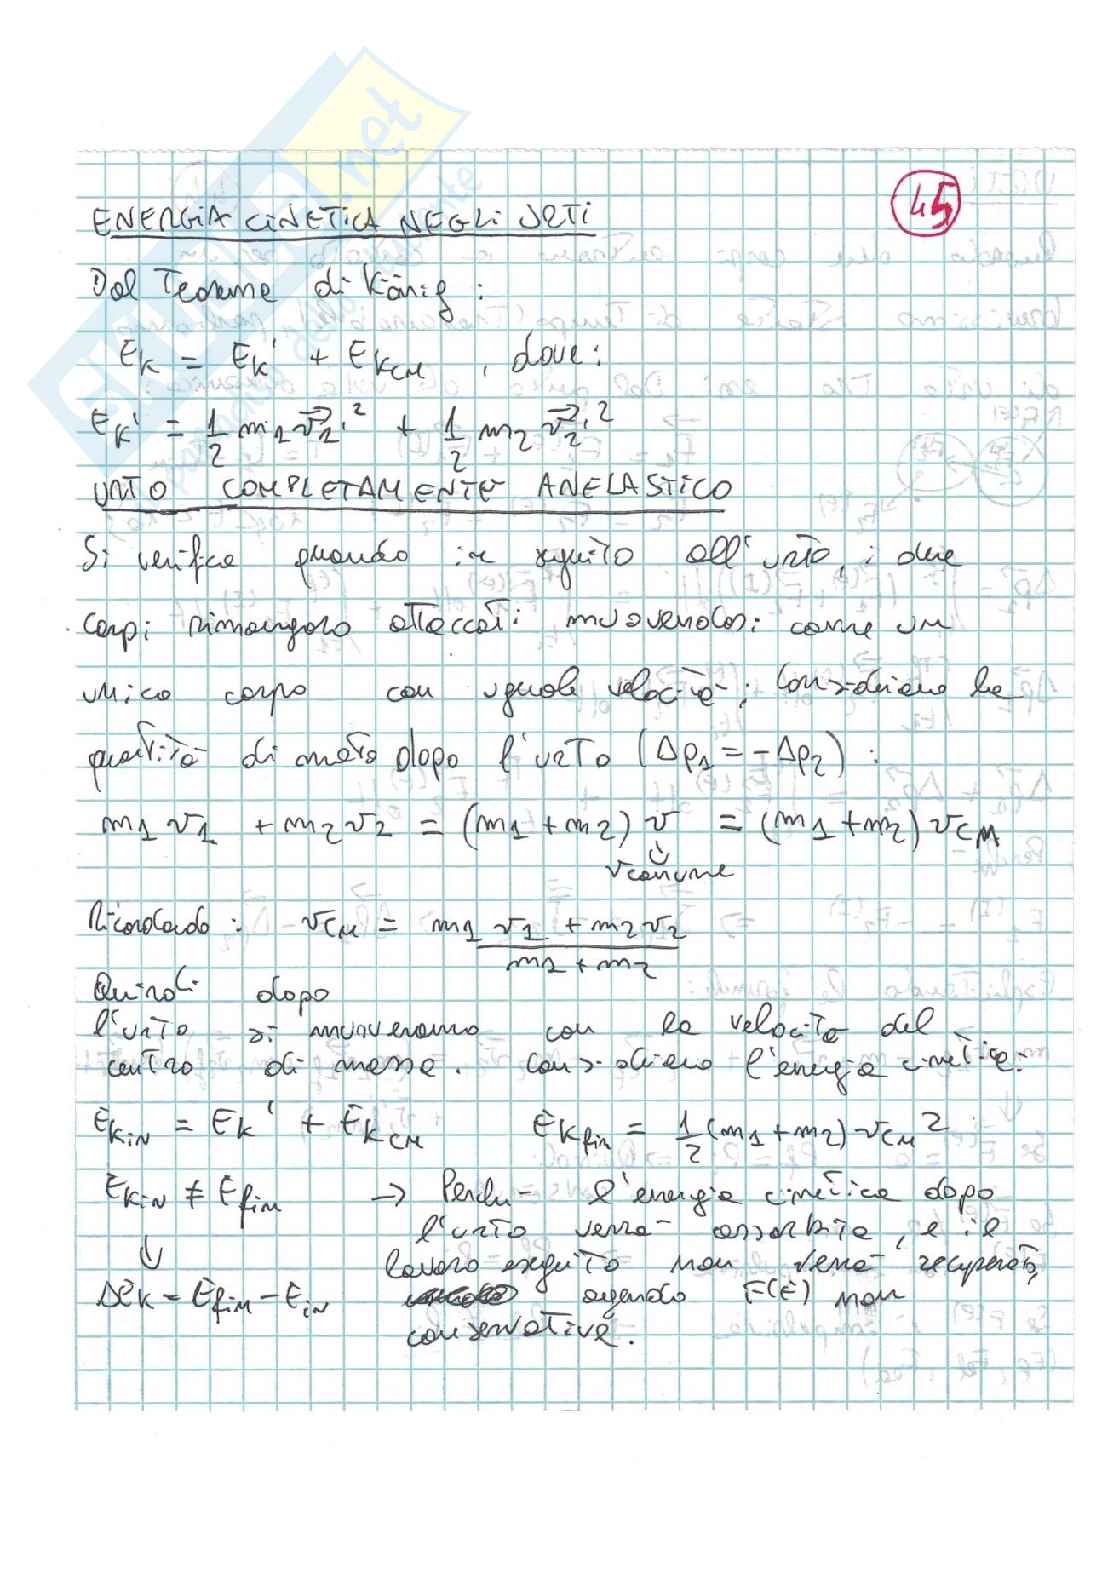 45
ENERGIA CINETICA NEGLI URTI
Dal Teorema di König :
EK = EK' + EKCM , dove :
EK' = 1/2 m1 v⃗1'² + 1/2 m2 v⃗2'²
URTO COMPLETAMENTE ANELASTICO
Si verifica quando in seguito all'urto, i due
corpi rimangono attaccati muovendosi come un
unico corpo con uguale velocità ; Consideriamo la
quantità di moto dopo l'urto (Δp1 = -Δp2) :
m1 v1 + m2 v2 = (m1 + m2) v = (m1 + m2) vCM
vcomune
Ricordando : vCM = m1 v1 + m2 v2 / m1 + m2
Quindi dopo
l'urto si muoveranno con la velocità del
centro di massa. Consideriamo l'energia cinetica:
EKin = EK' + EKCM EKfin = 1/2 (m1 + m2) vCM²
EKin ≠ Efin → Perché l'energia cinetica dopo
l'urto verrà assorbita, e il
lavoro eseguito non verrà recuperato,
ΔEK = Efin - Ein agendo F(E) non
conservative.
SKUOLA.net